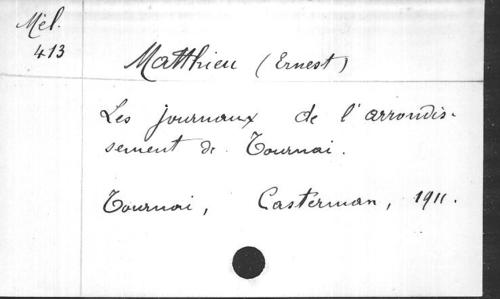 Mél.
413
Matthieu (Ernest)
Les journaux de l'arrondis-
sement de Tournai.
Tournai, Casterman, 1911.